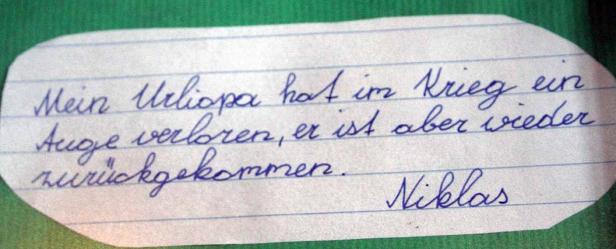 Mein Urliopa hat im Krieg ein
Auge verloren, er ist aber wieder
zurückgekommen.
Niklas